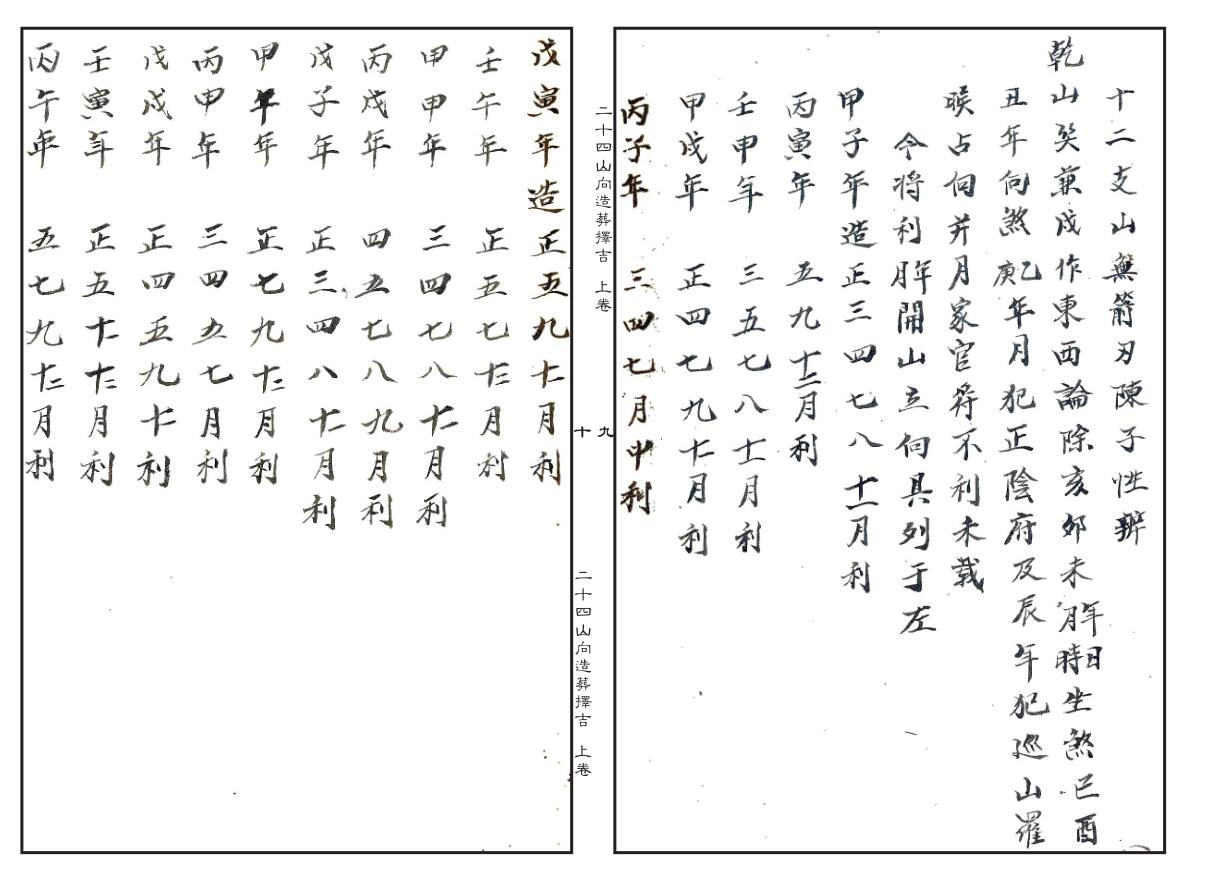 十二支山無箭刃陳子性辨
乾山巽兼戌作東西論除亥卯未年月日時坐煞巳酉
丑年向煞乙庚年月犯正陰府及辰午犯巡山羅
睺占向并月家官符不利未載
今將利年月開山立向具列于左
甲子年造正三四七八十一月利
丙寅年 五九十二月利
壬申年 三五七八十一月利
甲戌年 正四七九十二月利
丙子年 三四七月中利
二十四山向造葬擇吉 上卷
九
十
二十四山向造葬擇吉 上卷
戊寅年造正五九十二月利
壬午年 正五七十二月利
甲申年 三四七八十二月利
丙戌年 四五七八九月利
戊子年 正三四八十二月利
甲午年 正七九十二月利
丙申年 三四五七月利
戊戌年 正四五九十二利
壬寅年 正五十十二月利
丙午年 五七九十二月利